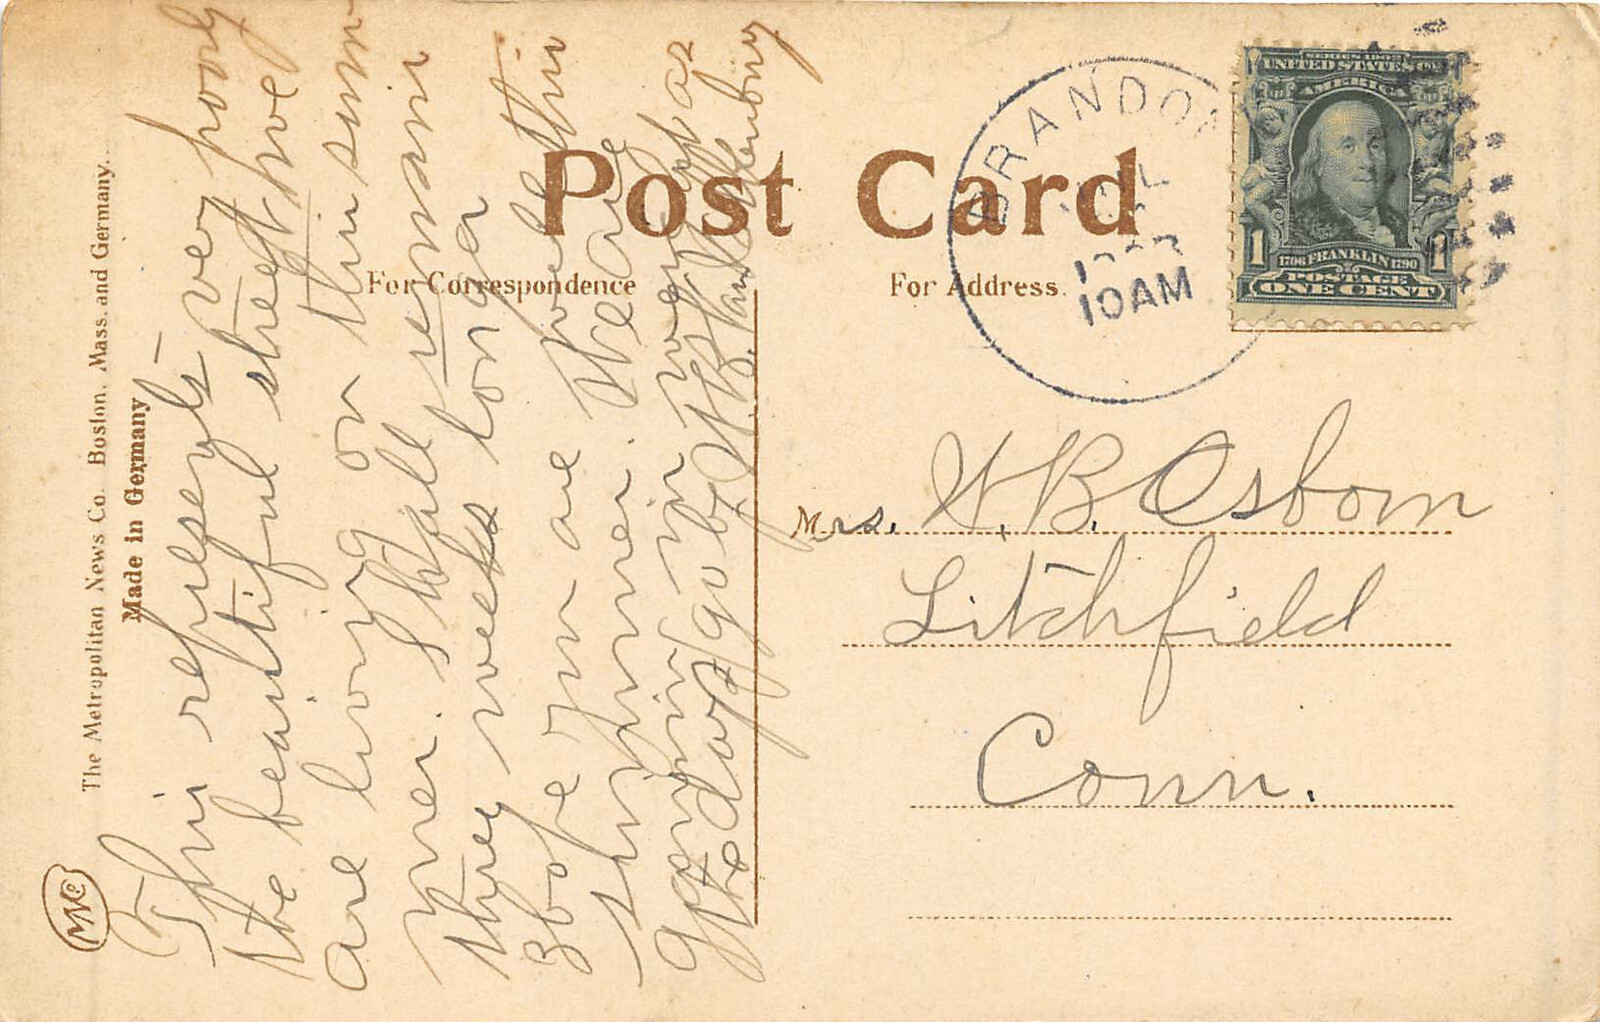 The Metropolitan News Co. Boston, Mass. and Germany.
Made in Germany
MNCo
Post Card
For Correspondence
For Address.
BRANDON
10AM
SERIES 1902
UNITED STATES OF
AMERICA
1706 FRANKLIN 1790
POSTAGE
1 1
ONE CENT
This represents very poorly
the beautiful street we
are living on this sum-
mer. Shall remain
three weeks longer
I hope you are well this
summer. We are
gaining in weight as
the days go by. H. B.
Mrs. H. B. Osborn
Litchfield
Conn.